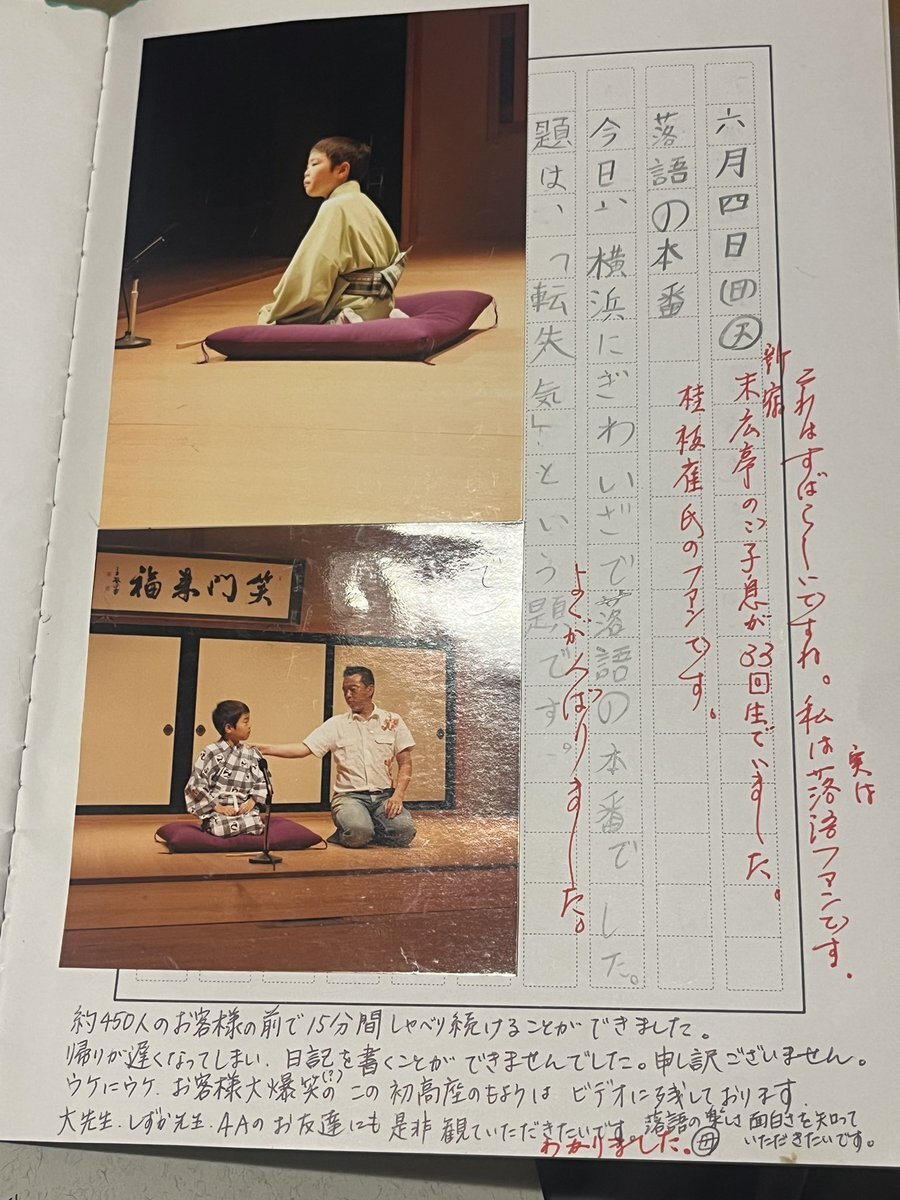 六月四日(日)天
落語の本番
今日は、横浜にぎわいざで落語の本番でした。
題は、「転失気」という題です。
で
これはすばらしいですね。私は実は落語ファンです。
新宿末広亭のご子息が33回生でいました。
桂枝雀氏のファンです。
よくがんばりました。
笑門来福
約450人のお客様の前で15分間しゃべり続けることができました。
帰りが遅くなってしまい、日記を書くことができませんでした。申し訳ございません。
ウケにウケ、お客様大爆笑の(?)この初高座のもようはビデオに残しております。
大先生、しずか先生、4Aのお友達にも是非観ていただきたいです。落語の楽しさ面白さを知っていただきたいです。
母
わかりました。